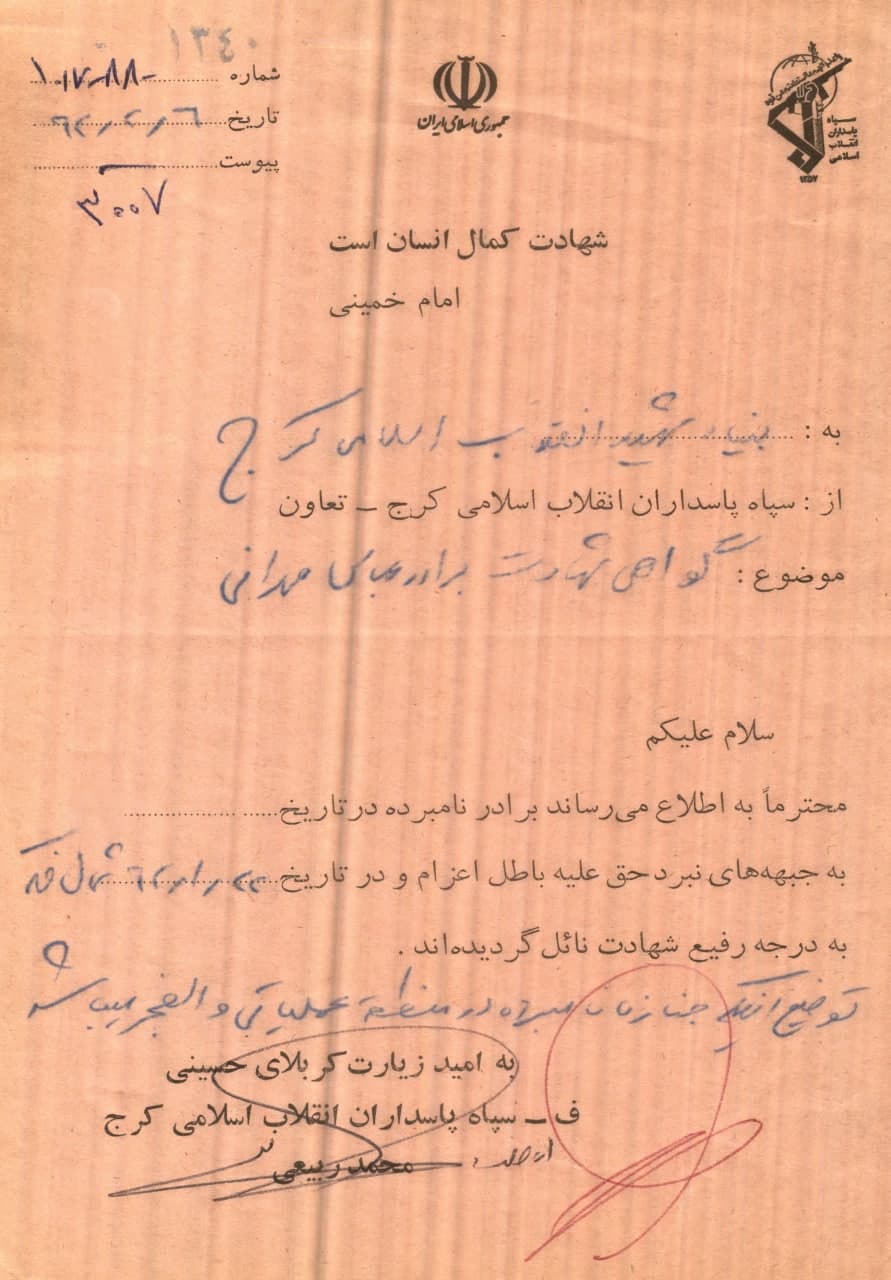 ۱۳۴۰
شماره ۱۰۱۷-۸۸۰
تاریخ ۶۲/۲/۶
پیوست
۳۰۰۷
جمهوری اسلامی ایران
سپاه
پاسداران
انقلاب
اسلامی
۱۳۵۷
شهادت کمال انسان است
امام خمینی
به : بنیاد شهید انقلاب اسلامی کرج
از : سپاه پاسداران انقلاب اسلامی کرج ـ تعاون
موضوع : گواهی شهادت برادر عباس مهرانی
سلام علیکم
محترماً به اطلاع می‌رساند برادر نامبرده در تاریخ
به جبهه‌های نبرد حق علیه باطل اعزام و در تاریخ ۶۲/۱/۲۲ شمال فکه
به درجه رفیع شهادت نائل گردیده‌اند .
توضیح اینکه جنازه نامبرده در منطقه عملیاتی والفجر میباشد
به امید زیارت کربلای حسینی
ف ـ سپاه پاسداران انقلاب اسلامی کرج
محمد ربیعی